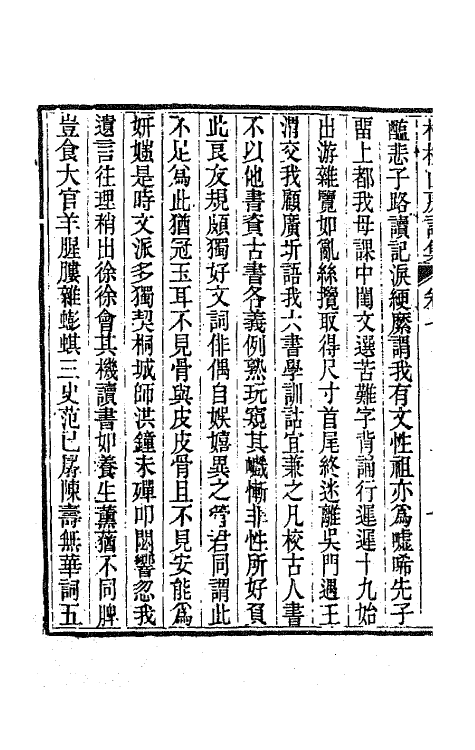 醯悲子路讀記淚綆縻謂我有文性祖亦爲噓唏先子
畱上都我母課中閨文選苦難字背誦行遲遲十九始
出游雜覽如亂絲攬取得尺寸首尾終迷離吳門遇王
渭交我顧廣圻語我六書學訓詁宜兼之凡校古人書
不以他書資古書各義例熟玩窺其巇慚非性所好負
此良友規頗獨好文詞俳偶自娛嬉異之管君同謂此
不足爲此猶冠玉耳不見骨與皮皮骨且不見安能爲
妍媸是時文派多獨契桐城師洪鐘未殫叩悶響忽我
遺言往理稍出徐徐會其機讀書如養生薰猶不同脾
豈食大官羊腥膻雜蟛蜞三史范已孱陳壽無華詞五